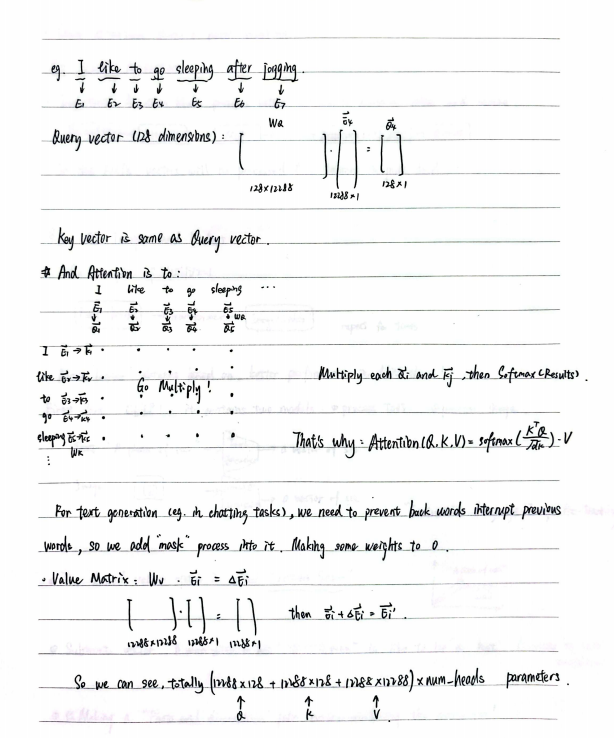 eg. I like to go sleeping after jogging.
↓ ↓ ↓ ↓ ↓ ↓ ↓
E1 E2 E3 E4 E5 E6 E7
Query vector (128 dimensions): [ ] · [ ] = [ ]
WQ E4 Q4
128×12288 12288×1 128×1
Key vector is same as Query vector.
* And Attention is to:
I like to go sleeping ...
E1 E2 E3 E4 E5
↓ ↓ ↓ ↓ ↓ WQ
Q1 Q2 Q3 Q4 Q5
I E1 → K1 · · · · ·
like E2 → K2 · · · · ·
Go Multiply!
Multiply each Qi and Kj, then Softmax(Results).
to E3 → K3 · · · · ·
go E4 → K4 · · · · ·
sleeping E5 → K5 · · · · ·
⋮ WK
That's why: Attention(Q, K, V) = softmax(K^T Q / √dk) · V
For text generation (eg. in chatting tasks), we need to prevent back words interrupt previous
words, so we add "mask" process into it. Making some weights to 0.
· Value Matrix: Wv · Ei = ΔEi
[ ] · [ ] = [ ] then Ei + ΔEi = Ei'.
12288×12288 12288×1 12288×1
So we can see, totally (12288×128 + 12288×128 + 12288×12288) × num_heads parameters.
↑ ↑ ↑
Q K V